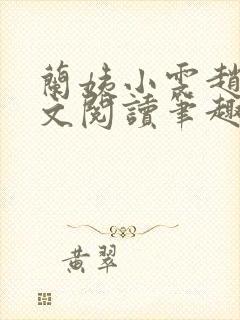 蘭姨小雲趙
文閱讀筆趣
黃翠